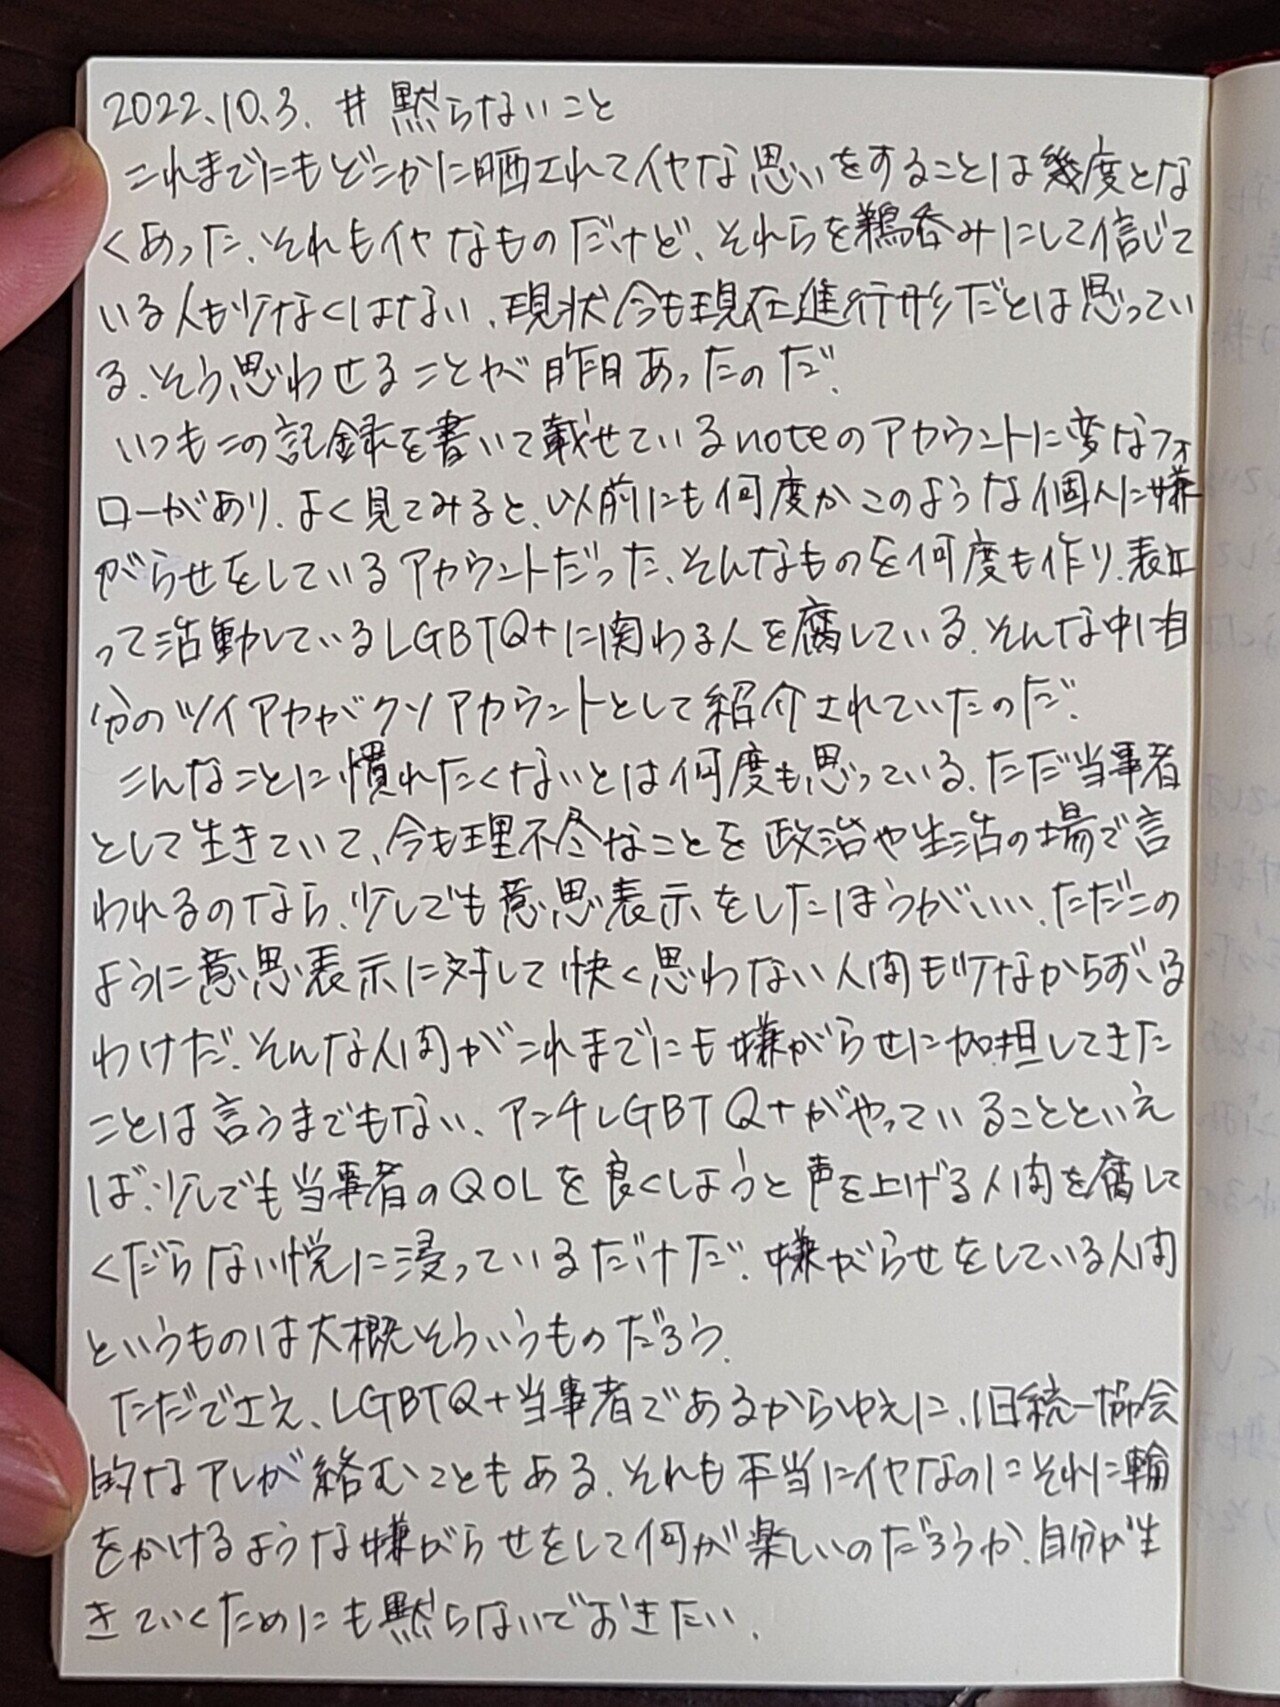 2022.10.3. #黙らないこと
これまでにもどこかに晒されてイヤな思いをすることは幾度とな
くあった、それもイヤなものだけど、それらを鵜呑みにして信じて
いる人も少なくはない、現状今も現在進行形だとは思ってい
る、そう思わせることが昨日あったのだ.
いつもこの記録を書いて載せているnoteのアカウントに変なフォ
ローがあり、よく見てみると、以前にも何度かこのような個人に嫌
がらせをしているアカウントだった、そんなものを何度も作り、表立
って活動しているLGBTQ+に関わる人を腐している、そんな中に自
分のツイアカがクソアカウントとして紹介されていたのだ.
こんなことに慣れたくないとは何度も思っている、ただ当事者
として生きていて、今も理不尽なことを政治や生活の場で言
われるのなら、少しでも意思表示をしたほうがいい、ただこの
ように意思表示に対して快く思わない人間も少なからずいる
わけだ、そんな人間がこれまでにも嫌がらせに加担してきた
ことは言うまでもない、アンチLGBTQ+がやっていることといえ
ば、少しでも当事者のQOLを良くしようと声を上げる人間を腐して
くだらない悦に浸っているだけだ、嫌がらせをしている人間
というものは大概そういうものだろう.
ただでさえ、LGBTQ+当事者であるからゆえに、旧統一協会
的なアレが絡むこともある、それも本当にイヤなのにそれに輪
をかけるような嫌がらせをして何が楽しいのだろうか、自分が生
きていくためにも黙らないでおきたい.